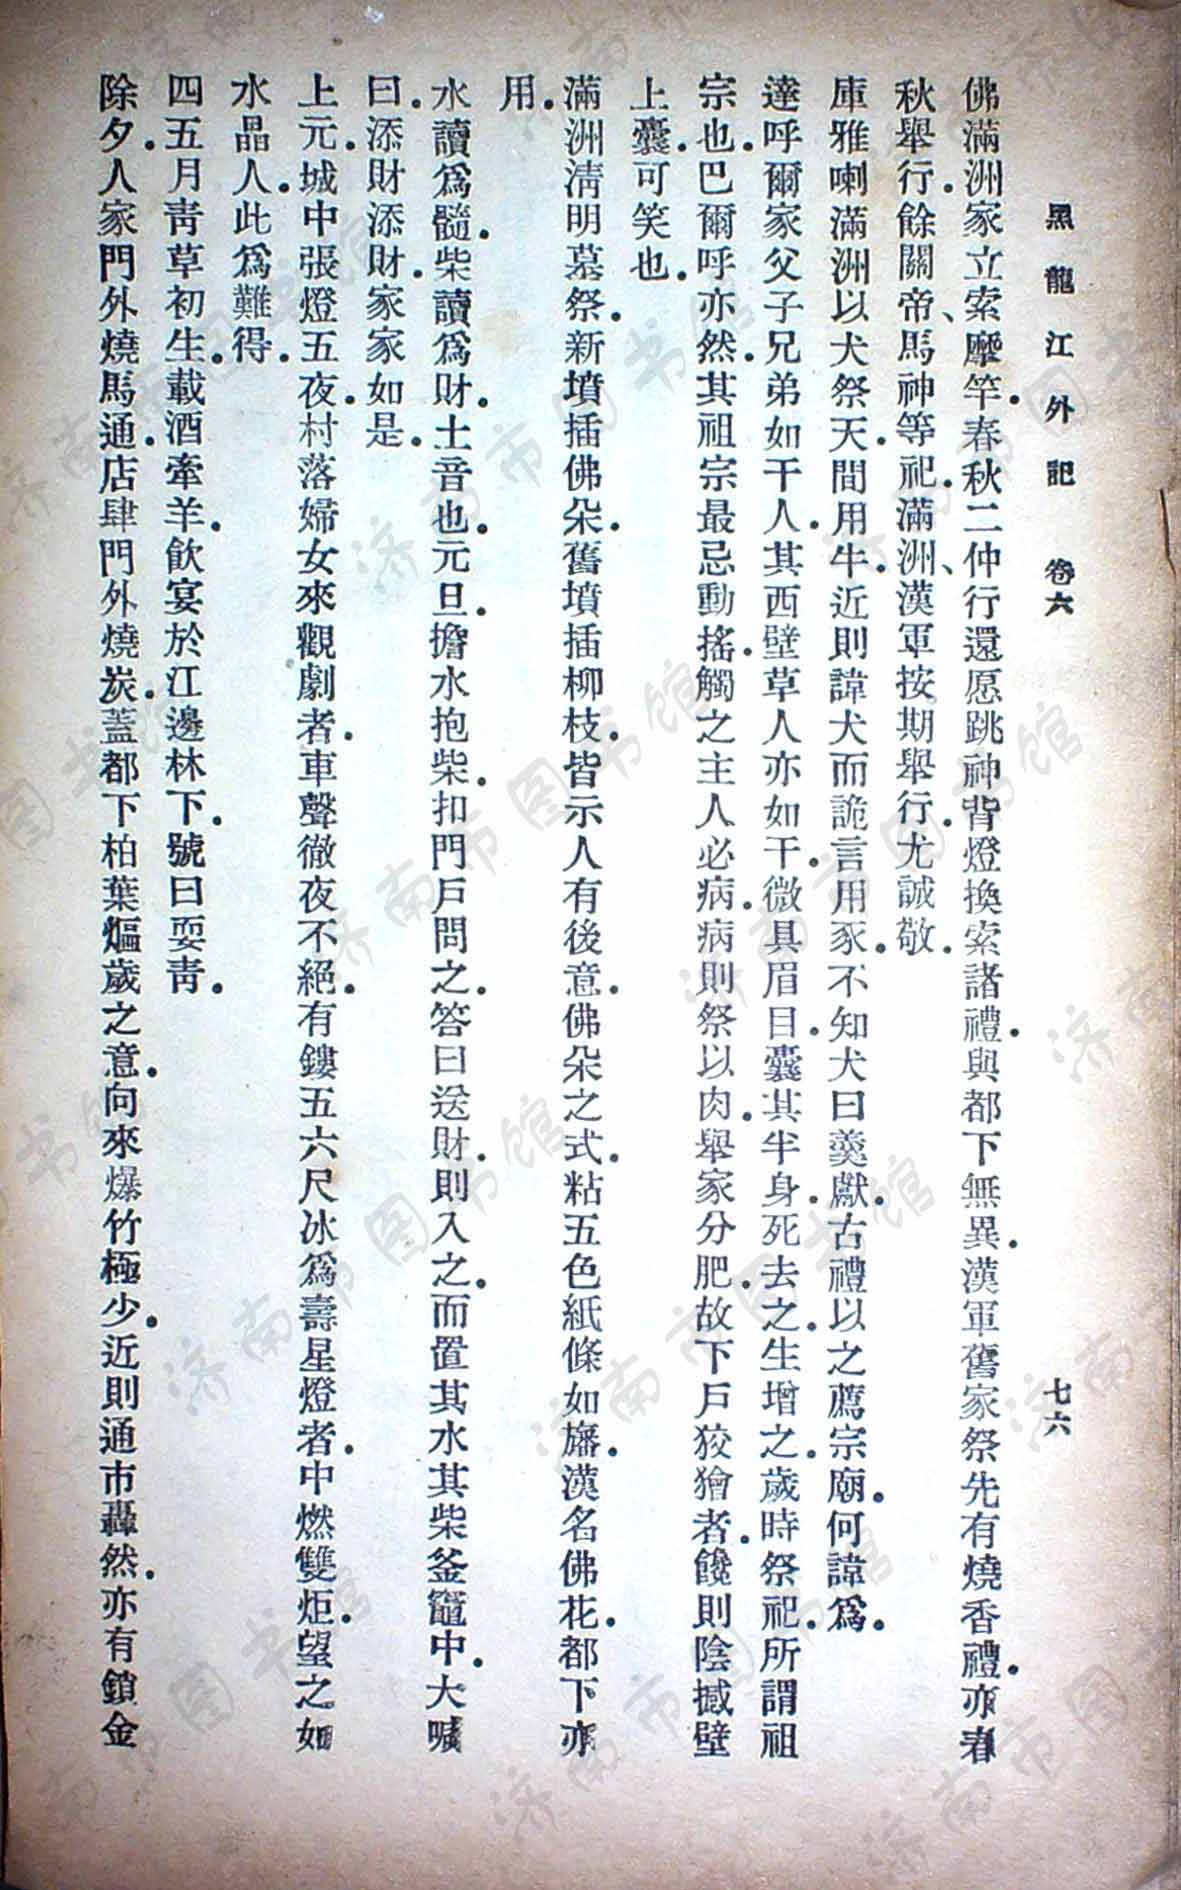 黑龍江外記　卷六　七六
佛滿洲家立索摩竿。春秋二仲行還愿跳神背燈換索諸禮。與都下無異。漢軍舊家祭先有燒香禮。亦春
秋舉行。餘關帝、馬神等祀。滿洲、漢軍按期舉行。尤誠敬。
庫雅喇滿洲以犬祭天。間用牛。近則諱犬而詭言用豕。不知犬曰羹獻。古禮以之薦宗廟。何諱爲。
達呼爾家父子兄弟如干人。其西壁草人亦如干。微具眉目。囊其半身。死去之。生增之。歲時祭祀。所謂祖
宗也。巴爾呼亦然。其祖宗最忌動搖。觸之主人必病。病則祭以肉。舉家分肥。故下戶狡獪者。饞則陰撼壁
上囊。可笑也。
滿洲淸明墓祭。新墳插佛朵。舊墳插柳枝。皆示人有後意。佛朵之式。粘五色紙條如旛。漢名佛花。都下亦
用。
水讀爲髓。柴讀爲財。土音也。元旦。擔水抱柴。扣門戶問之。答曰送財。則入之。而置其水其柴釜竈中。大喊
曰。添財添財。家家如是。
上元。城中張燈五夜。村落婦女來觀劇者。車聲徹夜不絕。有鏤五六尺冰爲壽星燈者。中燃雙炬。望之如
水晶人。此爲難得。
四五月青草初生。載酒牽羊。飮宴於江邊林下。號曰耍青。
除夕。人家門外燒馬通。店肆門外燒炭。蓋都下柏葉熰歲之意。向來爆竹極少。近則通市轟然。亦有鎖金
济南市图书馆